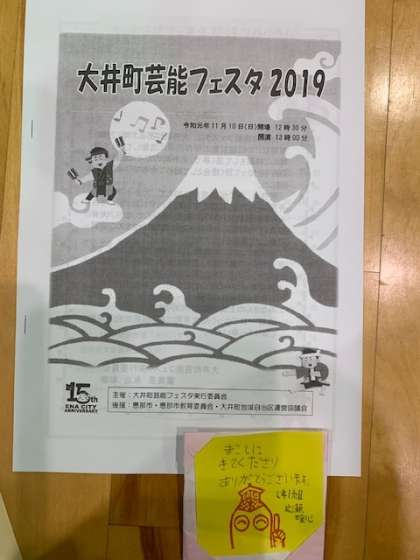 大井町芸能フェスタ2019
令和元年11月10日(日)開場 12時30分
開演 13時00分
15th
ENA CITY
ANNIVERSARY
主催：大井町芸能フェスタ実行委員会
後援：恵那市・恵那市教育委員会・大井町地域自治区運営協議会
きょうは
きてくださり
ありがとうございます。